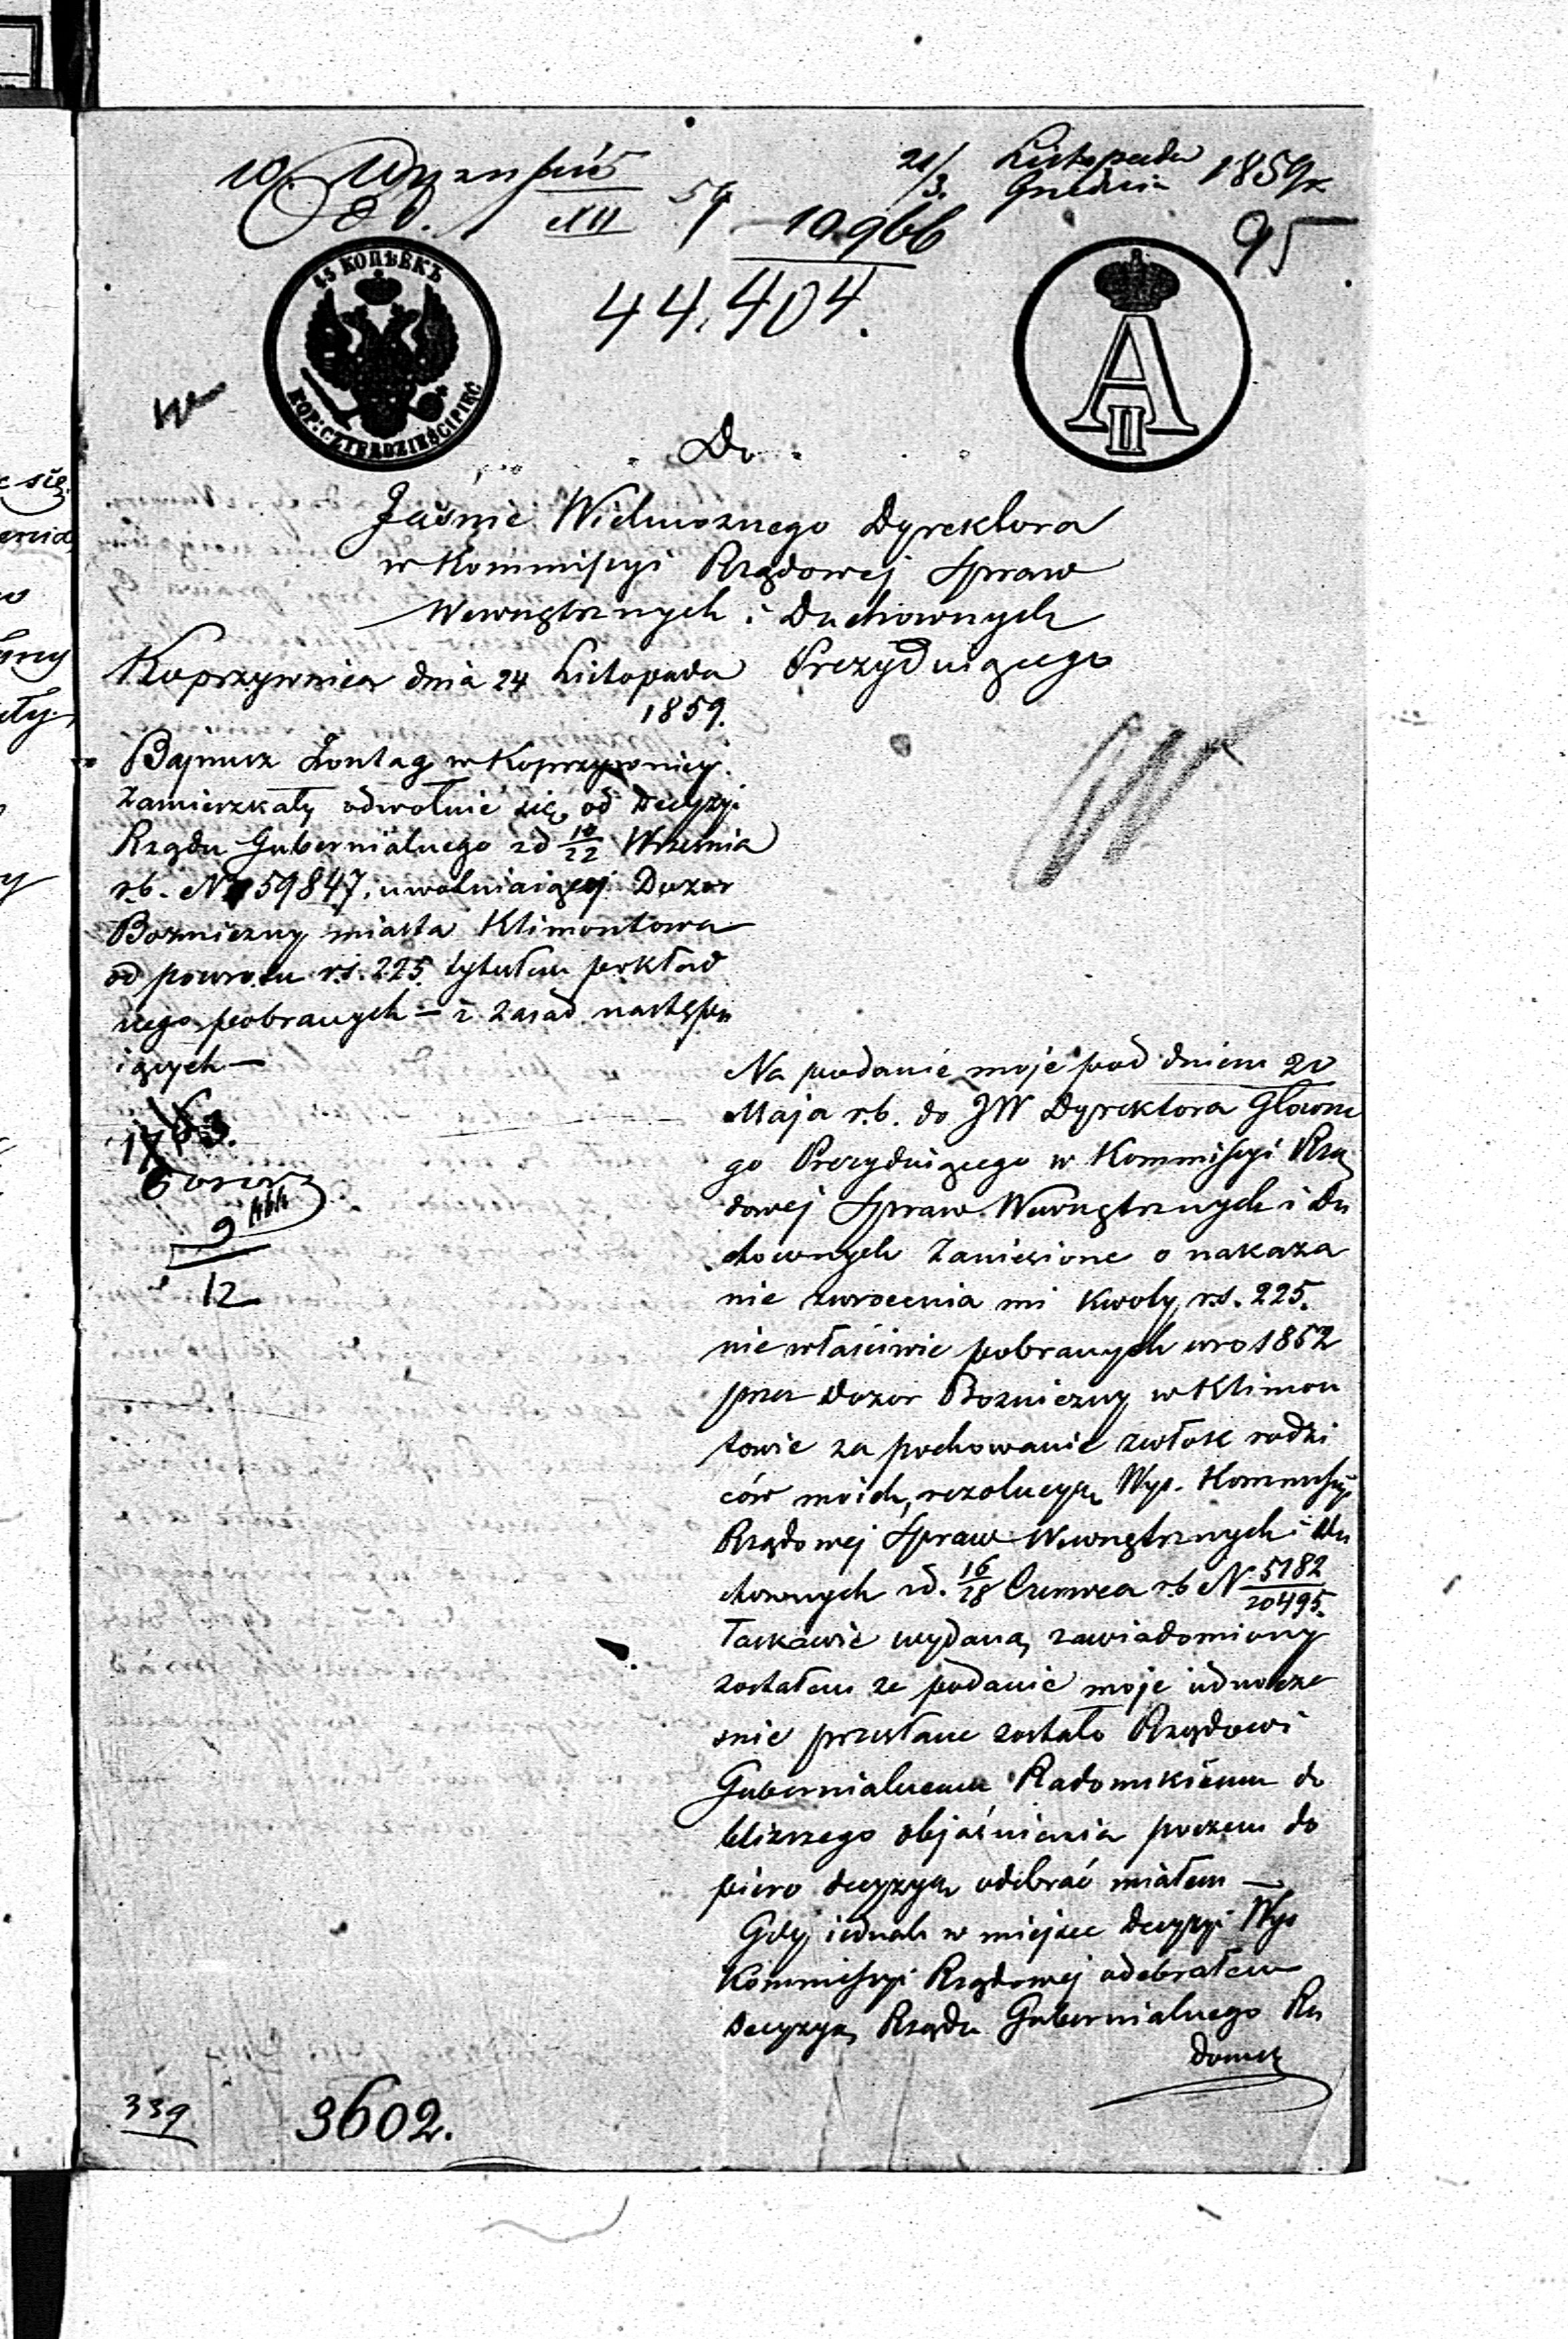 21/3. Listopada
Grudnia 1859 r.
95
XII 59 10966
44,404.
45 КОПѢЕКЪ
KOP: CZTERDZIEŚCI PIĘĆ
A II
Do
Jaśnie Wielmożnego Dyrektora
w Kommissyi Rządowej Spraw
Wewnętrznych i Duchownych
Prezydującego
Koprzywnica dnia 24 Listopada
1859.
Bajnusz Zontag w Koprzywnicy
zamieszkały odwołuie się od Decyzyi
Rządu Gubernialnego z d 10/22 Września
r.b. N 59847. uwalniaiącej Dozor
Bożniczny miasta Klimontowa
od powrotu r.s. 225. tytułem pokład
nego pobranych – z zasad następu
iących –
9
12
Na podanie moje pod dniem 20
Maja r.b. do JW Dyrektora Główne
go Prezyduiącego w Kommissyi Rzą
dowej Spraw Wewnętrznych i Du
chownych zaniesione o nakaza
nie zwrocenia mi kwoty r.s. 225.
niewłaściwie pobranych w ro 1852
przez Dozor Bożniczny w Klimon
towie za pochowanie zwłok rodzi
ców moich, rezolucyą Wys. Kommissyi
Rządowej Spraw Wewnętrznych i Du
chownych z d. 16/28 Czerwca r.b N 5182/20495.
łaskawie wydaną, zawiadomiony
zostałem że podanie moje iednocze
snie przesłane zostało Rządowi
Gubernialnemu Radomskiemu do
bliższego objaśnienia poczem do
piero decyzyą odebrać miałem –
Gdy iednak w miejsce decyzyi Wys
Kommissyi Rządowej odebrałem
decyzyą Rządu Gubernialnego Ra
domsk
339
3602.